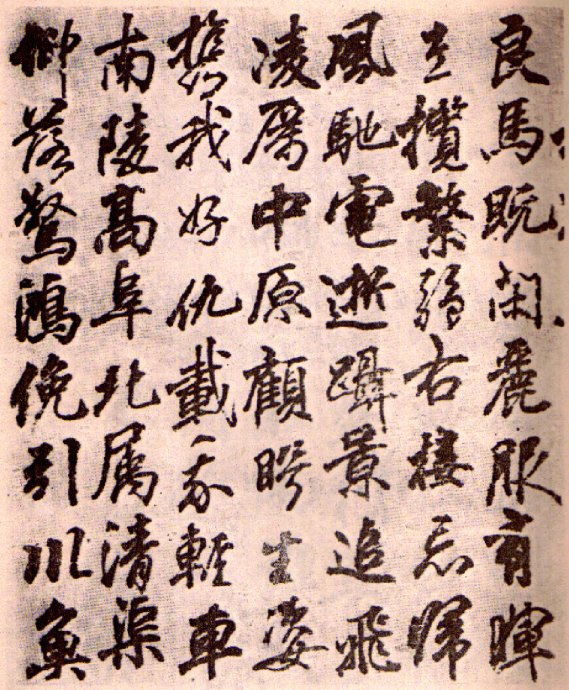 良馬既閑麗服有暉
左攬繁弱右接忘歸
風馳電逝躡景追飛
凌厲中原顧盻生姿
携我好仇載我輕車
南陵高阜北属清渠
仰落驚鴻俛引川魚